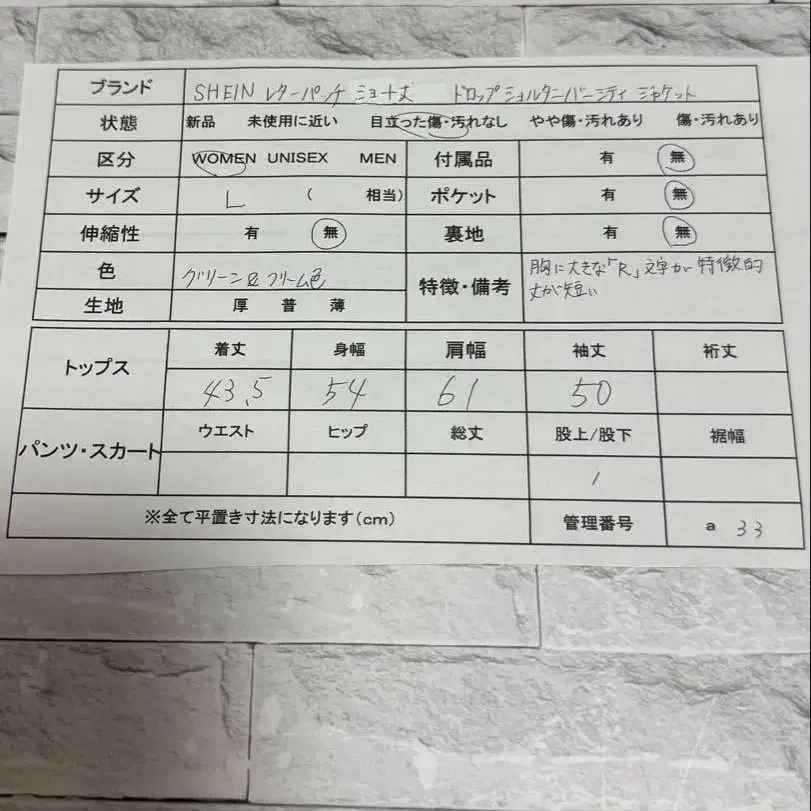 ブランド SHEIN レターパッチ ショート丈 ドロップショルダーバーシティ ジャケット
状態 新品 未使用に近い 目立った傷・汚れなし やや傷・汚れあり 傷・汚れあり
区分 WOMEN UNISEX MEN 付属品 有 無
サイズ L ( 相当) ポケット 有 無
伸縮性 有 無 裏地 有 無
色 グリーン&クリーム色 特徴・備考 胸に大きな「R」文字が特徴的
丈が短い
生地 厚 普 薄
トップス 着丈 身幅 肩幅 袖丈 裄丈
43.5 54 61 50
パンツ・スカート ウエスト ヒップ 総丈 股上/股下 裾幅
/
※全て平置き寸法になります(cm) 管理番号 a 33